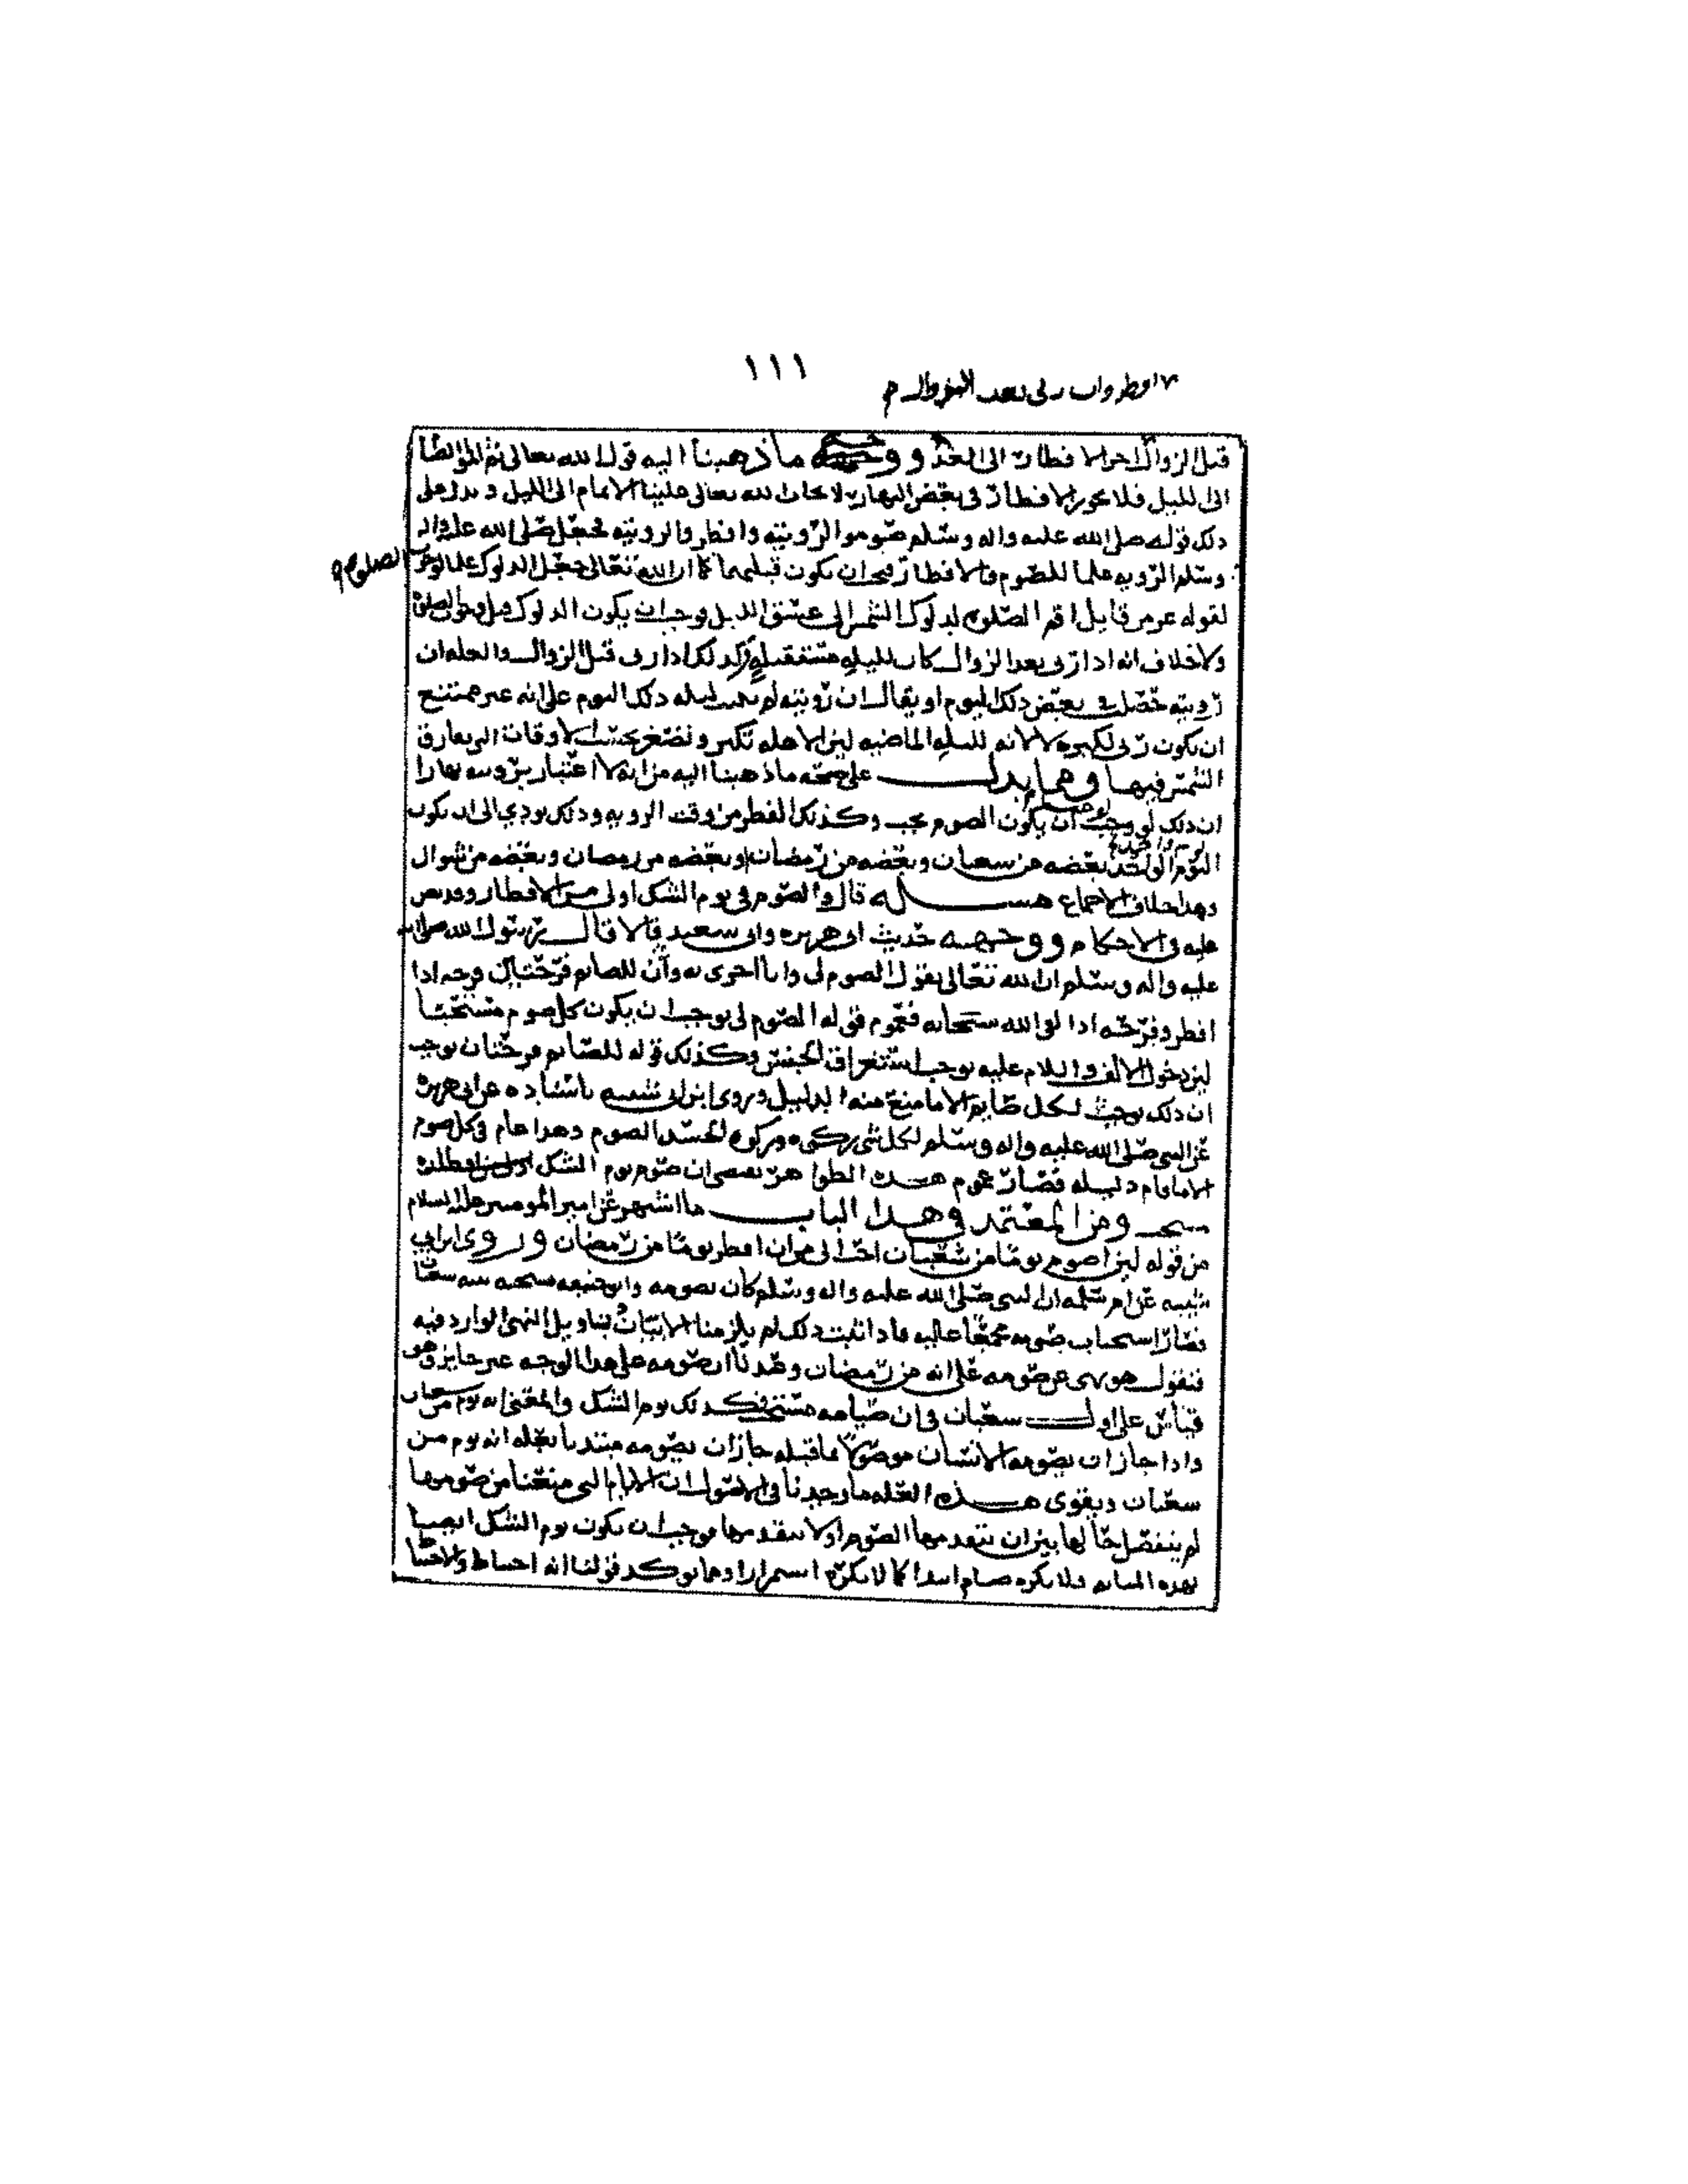 ١١١
افطر وان رئى بعد الزوال م
قبل الزوال اخر الافطار الى الغد ووجه ما ذهبنا اليه قول الله تعالى ثم اتموا الصيام
الى الليل فلا يجوز الافطار في بعض النهار لايجاب الله تعالى علينا الاتمام الى الليل ويدل على
ذلك قوله صلى الله عليه واله وسلم صوموا لرؤيته وافطروا لرؤيته فجعل صلى الله عليه واله
وسلم الرؤيه علما للصوم والافطار فيجب ان تكون قبلهما كما ان الله تعالى جعل الدلوك علما لوجوب الصلوة
لقوله عز من قايل اقم الصلوة لدلوك الشمس الى غسق الليل وجب ان يكون الدلوك قبل وجوب الصلوة
ولا خلاف انه اذا رئي بعد الزوال كان لليله مستقبله فكذلك اذا رئي قبل الزوال والعله ان
رؤيته حصلت في بعض ذلك اليوم او يقال ان رؤيته لم تكن ليله ذلك اليوم على انه غير ممتنع
ان يكون رئي لكبره لا لانه لليله الماضيه لان الاهله تكبر وتصغر بحسب الاوقات التي يفارق
الشمس فيها ومما يدل على صحه ما ذهبنا اليه من انه لا اعتبار برؤيته نهارا
ان ذلك لو وجب ان يكون الصوم يجب وكذلك الفطر من وقت الرؤيه وذلك يؤدي الى ان يكون
اليوم الواحد بعضه من شعبان وبعضه من رمضان او بعضه من رمضان وبعضه من شوال
وهذا خلاف الاجماع مسأله قال والصوم في يوم الشك اولى من الافطار وقد نص
عليه في الاحكام ووجهه حديث ابي هريره وابي سعيد قالا قال رسول الله صلى الله
عليه واله وسلم ان الله تعالى يقول الصوم لي وانا اجزي به وان للصايم فرحتين فرحه اذا
افطر وفرحه اذا لقي الله سبحانه فعموم قوله الصوم لي يوجب ان يكون كل صوم مستحبا
لان دخول الالف واللام عليه يوجب استغراق الجنس وكذلك قوله للصايم فرحتان يوجب
ان ذلك يوجب لكل صايم الا ما منع منه الدليل وروى ابن ابي شيبه باسناده عن ابي هريره
عن النبي صلى الله عليه واله وسلم لكل شي زكوه وزكوه الجسد الصوم وهذا عام في كل صوم
الا ما قام دليله فصار عموم هذه الظواهر يقتضي ان صوم يوم الشك
ومن المعتمد في هذا الباب ما اشتهر عن امير المومنين عليه السلام
من قوله لان اصوم يوما من شعبان احب الى من ان افطر يوما من رمضان وروى ابن ابي
شيبه عن ام سلمه ان النبي صلى الله عليه واله وسلم كان يصومه وابو حنيفه
فصار استحباب صومه مجمعا عليه فاذا ثبت ذلك لم يلزمنا الاتيان بتاويل النهي الوارد فيه
فنقول هو نهي عن صومه على انه من رمضان وعندنا ان صومه على هذا الوجه غير جايز وهو
قياس على اول شعبان في ان صيامه مستحب فكذلك يوم الشك والمعنى انه يوم من شعبان
واذا جاز ان يصومه الانسان موصولا بما قبله جاز ان يصومه مبتديا بعله انه يوم من
شعبان ويقوي هذه العله ما وجدنا في الاصول ان الايام التي منعنا من صومها
لم ينفصل حالها بين ان يتقدمها الصوم او لا يتقدمها فوجب ان يكون يوم الشك ايضا
بهذه المثابه فلا يكره صيام ابتدا كما لا يكره استمرارا ومما يؤكد قولنا انه احتياط والاحتياط